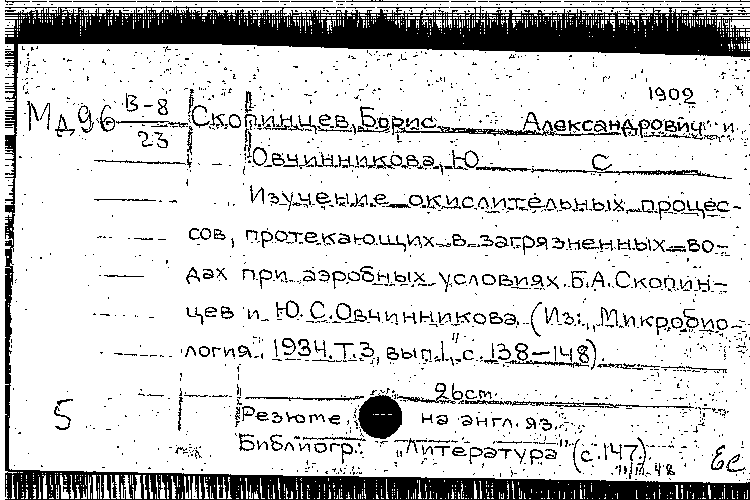 1902
Мд96 В-8/23 Скопинцев, Борис Александрович и
Овчинникова, Ю С
Изучение окислительных процес-
сов, протекающих в загрязненных во-
дах при аэробных условиях. Б.А. Скопин-
цев и Ю.С. Овчинникова. (Из: „Микробио-
логия", 1934. Т. 3, вып. 1, с. 138-148).
26 cm.
5 Резюме на англ. яз.
Библиогр.: „Литература" (с. 147).
Ес